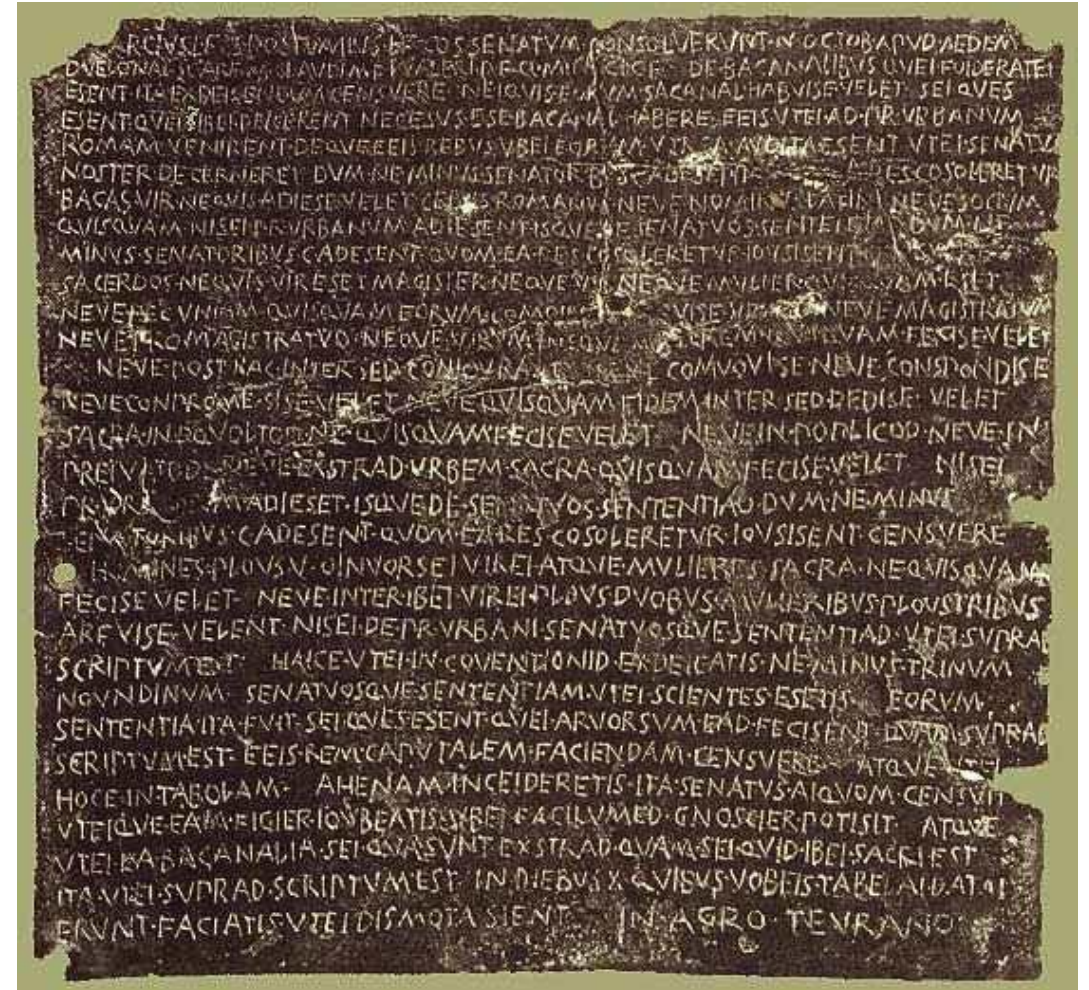 COS SENATVM CONSOLVERVNT·N·OCTOB·APVD·AEDEM
DVELONAI·SC·ARF·M·CLAVDI·M·F VALERI·P·F·Q·MINVCI·C·F· DE·BACANALIBVS·QVEI·FOIDERATEI
ESENT·ITA·EXDEICENDVM·CENSVERE· NEIQVIS·EORVM·BACANAL·HABVISE·VELET· SEI·QVES
ESENT·QVEI·SIBEI·DEICERENT NECESVS·ESE·BACANAL·HABERE·EEIS·VTEI·AD·PR·VRBANVM
ROMAM·VENIRENT·DEQVE·EEIS·REBVS·VBEI·EORVM VTR A AVDITA·ESENT·VTEI·SENATVS
NOSTER·DECERNERET· DVM·NE·MINVS·SENATORBVS·C·ADESENT RES·COSOLERETVR
BACAS·VIR·NEQVIS·ADIESE·VELET·CEIVIS·ROMANVS·NEVE·NOMINVS·LATINI·NEVE·SOCIVM
QVISQVAM·NISEI·PR·VRBANVM·ADIESENT·ISQVE·DE·SENATVOS·SENTENTIAD· DVM·NE
MINVS·SENATORIBVS·C·ADESENT·QVOM·EA·RES·COSOLERETVR·IOVSISENT
SACERDOS·NEQVIS·VIR·ESET·MAGISTER·NEQVE·VIR·NEQVE·MVLIER·QVISQVAM·ESET
NEVE·PECVNIAM·QVISQVAM·EORVM·COMOINEM NEVE·MAGISTRATVM
NEVE·PRO·MAGISTRATVD·NEQVE·VIRVM·NEQVE·MVLIEREM·QVIQVAM·FECISE·VELET
NEVE·POST·HAC·INTER·SED·CONIOVRASE COMVOVISE·NEVE·CONSPONDISE
NEVE·CONPROMESISE·VELET·NEVE·QVISQVAM·FIDEM·INTER·SED·DEDISE·VELET
SACRA·IN·DQVOLTOD·NE·QVISQVAM·FECISE·VELET· NEVE·IN·POPLICOD·NEVE·IN
PREIVATOD·NEVE·EXSTRAD·VRBEM·SACRA·QVISQVAM·FECISE·VELET· NISEI
PR·VRBANVM·ADIESET·ISQVE·DE·SENATVOS·SENTENTIAD·DVM·NE·MINVS
SENATORIBVS·C·ADESENT·QVOM·EA·RES·COSOLERETVR·IOVSISENT·CENSVERE
HOMINES·PLOVS·V·OINVORSEI·VIREI·ATQVE·MVLIERES·SACRA·NE·QVISQVAM
FECISE·VELET· NEVE·INTER·IBEI·VIREI·PLOVS·DVOBVS·MVLIERIBVS·PLOVS·TRIBVS
ARFVISE·VELENT·NISEI·DE·PR·VRBANI·SENATVOSQVE·SENTENTIAD·VTEI·SVPRAD
SCRIPTVM·EST· HAICE·VTEI·IN·COVENTIONID·EXDEICATIS·NE·MINVS·TRINVM
NOVNDINVM· SENATVOSQVE·SENTENTIAM·VTEI·SCIENTES·ESETIS· EORVM
SENTENTIA·ITA·FVIT·SEI·QVES·ESENT·QVEI·ARVORSVM·EAD·FECISENT·QVAM·SVPRAD
SCRIPTVM·EST·EEIS·REM·CAPVTALEM·FACIENDAM·CENSVERE· ATQVE·VTEI
HOCE·IN·TABOLAM· AHENAM·INCEIDERETIS·ITA·SENATVS·AIQVOM·CENSVIT
VTEIQVE·EAM·FIGIER·IOVBEATIS·VBEI·FACILVMED·GNOSCIER·POTISIT· ATQVE
VTEI·EA·BACANALIA·SEI·QVA·SVNT·EXSTRAD·QVAM·SEI·QVID·IBEI·SACRI·EST
ITA·VTEI·SVPRAD·SCRIPTVM·EST· IN·DIEBVS·X·QVIBVS·VOBEIS·TABELAI·DATAI
ERVNT·FACIATIS·VTEI·DISMOTA·SIENT· IN·AGRO·TEVRANO